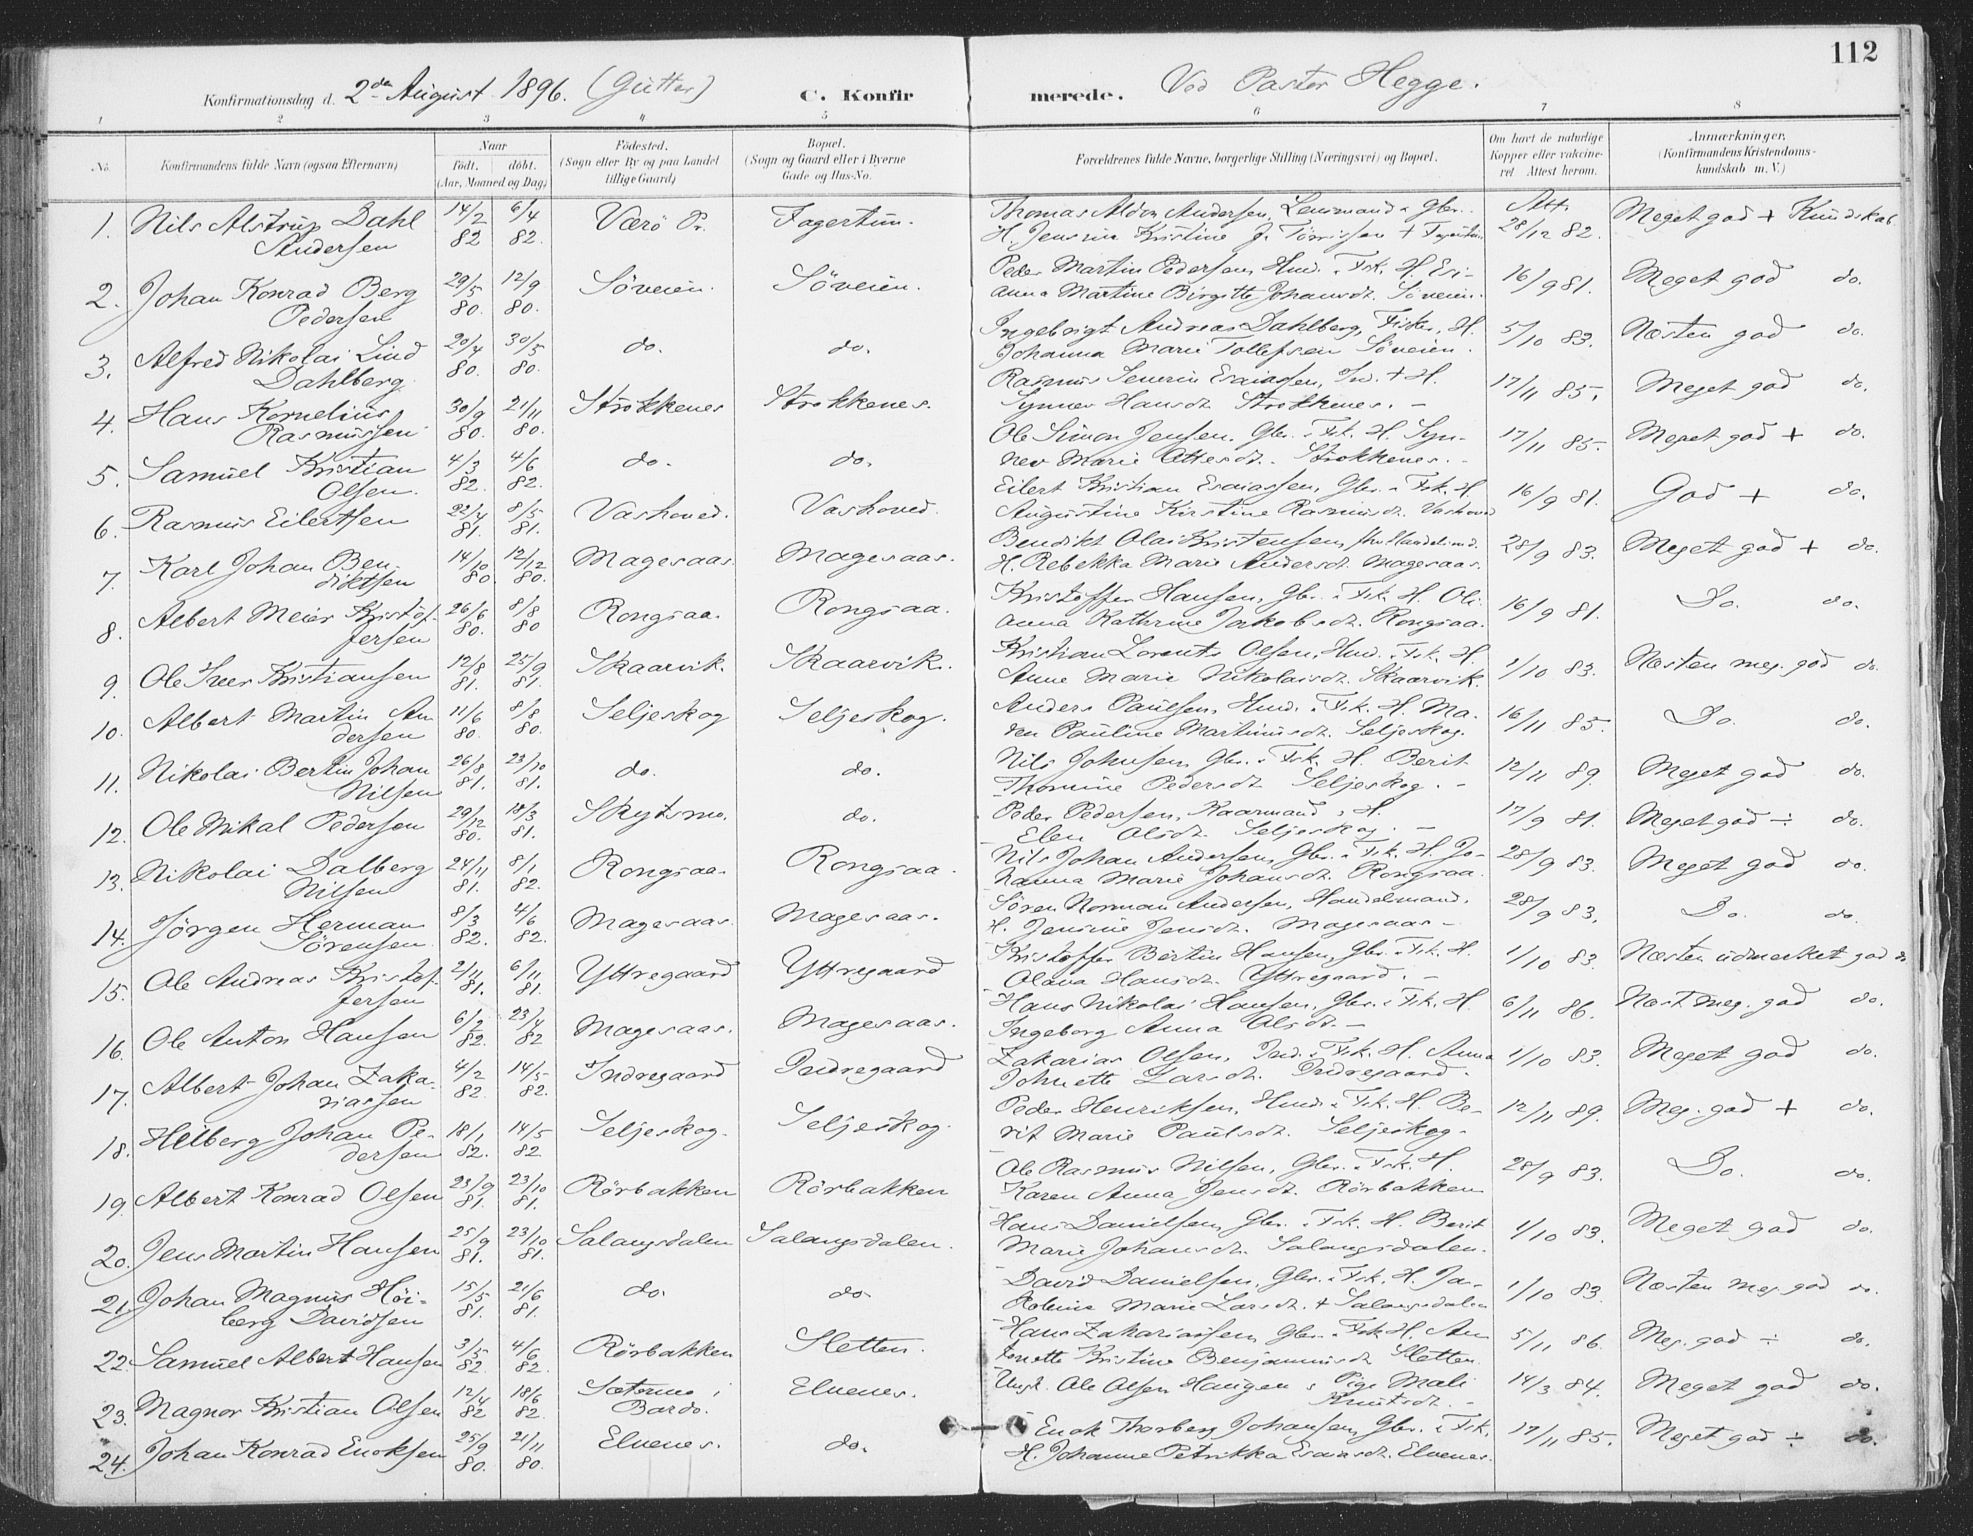 112
Konfirmationsdag d. 2den August 1896. (Gutter) C. Konfirmerede. Ved Pastor Hegge.
1 2 3 4 5 6 7 8
No. Konfirmandens fulde Navn (ogsaa Efternavn) Naar Født. døbt. (Aar, Maaned og Dag) Fødested. (Sogn eller By og paa Landet tillige Gaard) Bopæl. (Sogn og Gaard eller i Byerne Gade og Hus-No. Forældrenes fulde Navne, borgerlige Stilling (Næringsvei) og Bopæl. Om havt de naturlige Kopper eller vakcineret Attest herom. Anmærkninger, (Konfirmandens Kristendomskundskab m. V.)
1. Nils Alstrup Dahl 14/2 6/4 Værö Pr. Fagertun. Thomas Andersen, Lensmand Gbr. Att.
Andersen 82 82. H. Jensina Kristine J. 28/12 82. Meget god + Kundskab
2. Johan Konrad Berg 29/5 12/9 Söveien. Söveien. Peder Martin Pedersen, Hmd. i Fsk. H. Eri-
Pedersen 80. 80. anna Martine Birgitte Johansdt. Söveien. 16/9 81. Meget god do.
3. Alfred Nikolai Lind 20/4 30/5 do. do. Ingebrigt Andreas Dahlberg, Fisker, H.
Dahlberg. 80. 80. Johanna Marie Tollefsen Söveien. 5/10 83. Næsten god do.
4. Hans Kornelius 30/9 21/11 Strokkenes Strokkenes. Rasmus Severin Esaiassen, Ind. + H.
Rasmussen 80. 80. Synnev Hansdt. Strokkenes. – 17/11 85. Meget god do.
5. Samuel Kristian 4/3 4/6 do. do. Ole Simon Jensen, Gbr. i Fsk. H. Syn-
Olsen. 82. 82. nev Marie Ottesdt. Strokkenes. – 17/11 85. Meget god + do.
6. Rasmus Eilertsen 22/4 8/5 Vashoved. Vashoved. Eilert Kristian Esaiassen, Gbr. i Fsk. H.
81. 81. Augustine Kirstine Rasmusdt. Vashoved 16/9 81. God + do.
7. Karl Johan Ben- 14/10 12/12 Magesaas Magesaas. Benedikt Olai Kristensen,
diktsen 80. 80. H. Rebekka Marie Andersdt. Magesaas. 28/9 83. Meget god + do.
8. Albert Meier Kristof- 26/6 8/8 Rongsaa. Rongsaa. Kristoffer Hansen, Gbr. i Fsk. H. Oli-
fersen 80. 80 anna Kathrine Jakobsdt. Rongsaa. 16/9 81. Do. do.
9. Ole Iver Kristiansen 12/8 25/9 Skaarvik. Skaarvik. Kristian Lorents Olsen, Hmd. i Fsk. H.
81. 81. Anne Marie Nikolaisdt. Skaarvik. 1/10 83. Næsten meg. god do.
10. Albert Martin An- 11/6 8/8 Seljeskog Seljeskog. Anders Paulsen, Hmd. i Fsk. H. Ma-
dersen 80. 80. ren Pauline Martinusdt. Seljeskog. 16/11 85. Do. do.
11. Nikolai Bertin Johan 26/8 23/10 do. do. Nils Johnsen, Gbr. i Fsk. H. Berit
Nilsen 81. 81. Thomine Pedersdt. Seljeskog. – 12/11 89. Meget god do.
12. Ole Mikal Pedersen 29/12 18/3 Skytsmo. do. Peder Pedersen, Kaarmand, H.
80. 81. Elen Olsdt. Seljeskog. – 17/9 81. Meget god ÷ do.
13. Nikolai Dalberg 24/11 8/1 Rongsaa. Rongsaa. Nils Johan Andersen, Gbr. i Fsk. H. Jo-
Nilsen 81. 82. hanna Marie Johansdt. Rongsaa. 28/9 83. Meget god do.
14. Jörgen Herman 8/3 4/6 Magesaas Magesaas. Sören Norman Andersen, Handelsmand.
Sörensen 82. 82. H. Jensine Jensdt. Magesaas – 28/9 83. Do. do.
15. Ole Andreas Kristof- 2/11 6/11 Yttregaard Yttregaard Kristoffer Bertin Hansen, Gbr. i Fsk. H.
fersen 81. 81. Olava Hansdt. Yttregaard. – 1/10 83. Næsten udmerket god do
16. Ole Anton Hansen 6/2 23/4 Magesaas. Magesaas. Hans Nikolai Hansen, Gbr. i Fsk. H.
82. 82 Ingeborg Anna Olsdt. – 6/11 86. Næst. meg. god do.
17. Albert Johan Zaka- 4/2 14/5 Indregaard Indregaard Zakarias Olsen, Ind. i Fsk. H. Anna
riassen 82. 82. Johnette Larsdt. Indregaard. 1/10 83. Meget god do.
18. Helberg Johan Pe- 18/1 14/5 Seljeskog. Seljeskog. Peder Henriksen, Hmd. i Fsk. H. Be-
dersen 82. 82 rit Marie Paulsdt. Seljeskog. 12/11 89. Meg. god + do.
19. Albert Konrad Olsen 23/9 23/10 Rörbakken Rörbakken Ole Rasmus Nilsen, Gbr. i Fsk. H.
81. 81. Karen Anna Jensdt. Rörbakken 28/9 83. Do. do.
20. Jens Martin Hansen 25/9 23/10 Salangsdalen Salangsdalen. Hans Danielsen, Gbr. i Fsk. H. Berit
81. 81. Marie Johansdt. Salangsdalen. 1/10 83. Meget god do.
21. Johan Magnus Höi- 15/5 21/6 do. do. David Danielsen, Gbr. i Fsk. H. Ja-
berg Davidsen 81. 81. kobine Marie Larsdt. + Salangsdalen 1/10 83. Næsten meg. god do.
22. Samuel Albert Hansen 3/5 4/6 Rörbakken Sletten. Hans Zakariassen, Gbr. i Fsk. H. An-
82. 82. tonette Kristine Benjaminsdt. Sletten. 5/11 86. Meg. god ÷ do.
23. Magnor Kristian Olsen 12/4 18/6 Sætermo i Elvenes. Ungk. Ole Olsen Haugen & Pige Mali
82 82. Bardo. Knutsdt. – 14/3 84. Meget god do.
24. Johan Konrad Enoksen 25/9 21/11 Elvenes. do. Enok Thorberg Johansen, Gbr. i Fsk.
80. 80. H. Johanne Petrikka Esaiasdt. Elvenes. 17/11 85. Meget god ÷ do.